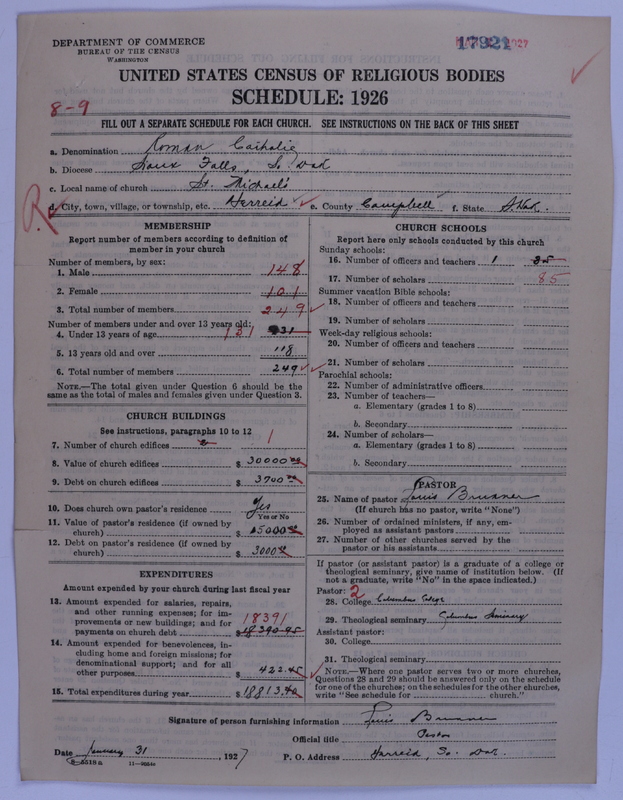 DEPARTMENT OF COMMERCE
BUREAU OF THE CENSUS
WASHINGTON
17921
UNITED STATES CENSUS OF RELIGIOUS BODIES
SCHEDULE: 1926
8-9
FILL OUT A SEPARATE SCHEDULE FOR EACH CHURCH. SEE INSTRUCTIONS ON THE BACK OF THIS SHEET
a. Denomination Roman Catholic
b. Diocese Sioux Falls, So. Dak
c. Local name of church St. Michael's
R
d. City, town, village, or township, etc. Herreid e. County Campbell f. State S. Dak.
MEMBERSHIP
Report number of members according to definition of
member in your church
Number of members, by sex:
1. Male 148
2. Female 101
3. Total number of members 249
Number of members under and over 13 years old:
4. Under 13 years of age 131 31
5. 13 years old and over 118
6. Total number of members 249
NOTE.—The total given under Question 6 should be the
same as the total of males and females given under Question 3.
CHURCH BUILDINGS
See instructions, paragraphs 10 to 12
7. Number of church edifices 1
8. Value of church edifices $ 30000 00
9. Debt on church edifices $ 3700 00
10. Does church own pastor's residence Yes
Yes or No
11. Value of pastor's residence (if owned by
church) $ 5000
12. Debt on pastor's residence (if owned by
church) $ 3000
EXPENDITURES
Amount expended by your church during last fiscal year
13. Amount expended for salaries, repairs,
and other running expenses; for im-
provements or new buildings; and for 18391
payments on church debt $ 18390.95
14. Amount expended for benevolences, in-
cluding home and foreign missions; for
denominational support; and for all
other purposes $ 422.45
15. Total expenditures during year $ 18813.40
CHURCH SCHOOLS
Report here only schools conducted by this church
Sunday schools:
16. Number of officers and teachers 1 85
17. Number of scholars 85
Summer vacation Bible schools:
18. Number of officers and teachers
19. Number of scholars
Week-day religious schools:
20. Number of officers and teachers
21. Number of scholars
Parochial schools:
22. Number of administrative officers
23. Number of teachers—
a. Elementary (grades 1 to 8)
b. Secondary
24. Number of scholars—
a. Elementary (grades 1 to 8)
b. Secondary
PASTOR
25. Name of pastor Louis Brunner
(If church has no pastor, write "None")
26. Number of ordained ministers, if any, em-
ployed as assistant pastors
27. Number of other churches served by the
pastor or his assistants
If pastor (or assistant pastor) is a graduate of a college or
theological seminary, give name of institution below. (If
not a graduate, write "No" in the space indicated.)
Pastor: 2
28. College Columbus College
29. Theological seminary Columbus Seminary
Assistant pastor:
30. College
31. Theological seminary
NOTE.—Where one pastor serves two or more churches,
Questions 28 and 29 should be answered only on the schedule
for one of the churches; on the schedules for the other churches,
write "See schedule for church."
Signature of person furnishing information Louis Brunner
Official title Pastor
Date January 31, 1927 P. O. Address Herreid, So. Dak.
8-5518a